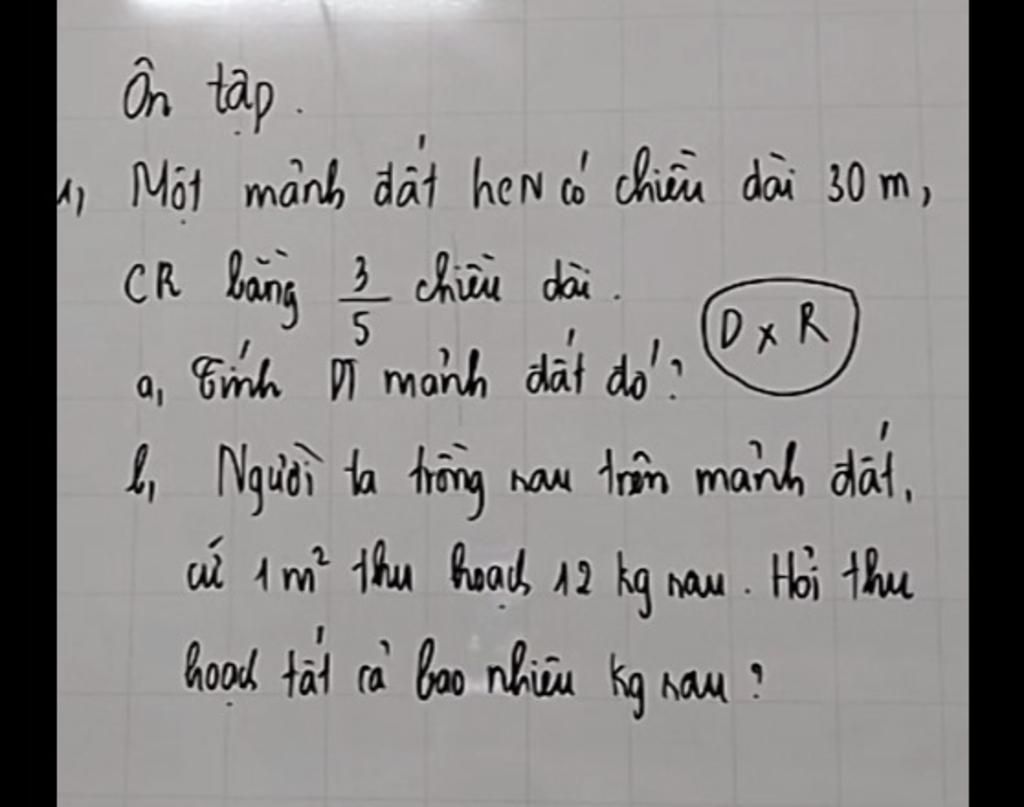 Ôn tập.
1, Một mảnh đất hcN có chiều dài 30 m,
CR bằng 3/5 chiều dài.
D x R
a, Tính DT mảnh đất đó?
b, Người ta trồng rau trên mảnh đất,
cứ 1 m² thu hoạch 12 kg rau. Hỏi thu
hoạch tất cả bao nhiêu kg rau?